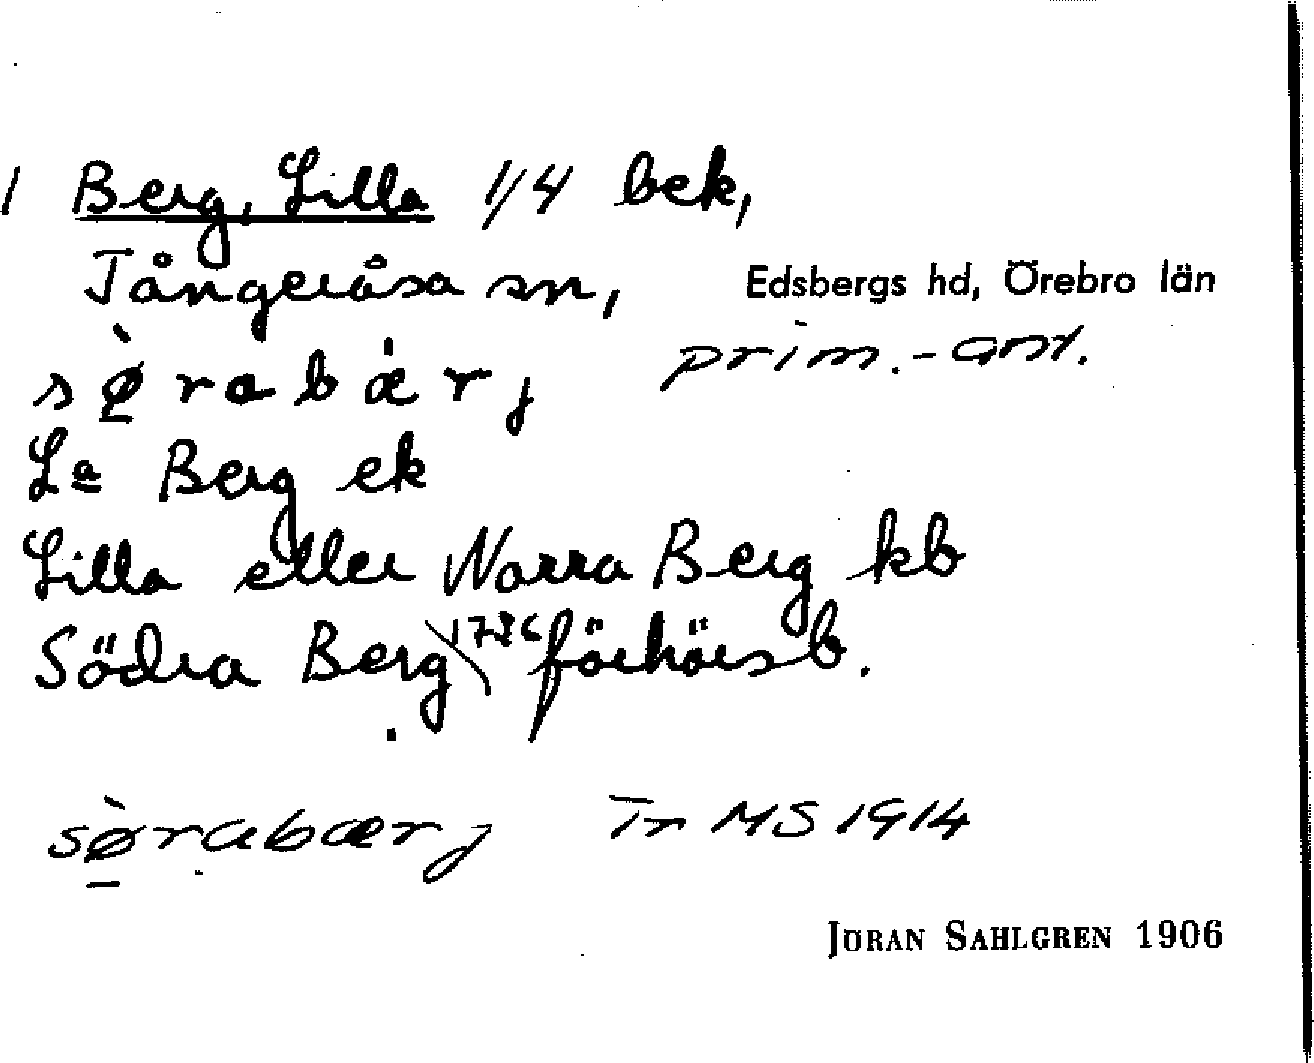 1 Berg, Lilla 1/4 bek,
Tångeråsa sn, Edsbergs hd, Örebro län
sø̀rabǽrj prim.-ant.
La Berg ek
Lilla eller Norra Berg kb
Södra Berg 1786 förhörsb.
sø̀rabærj Tr MS 1914
JÖRAN SAHLGREN 1906